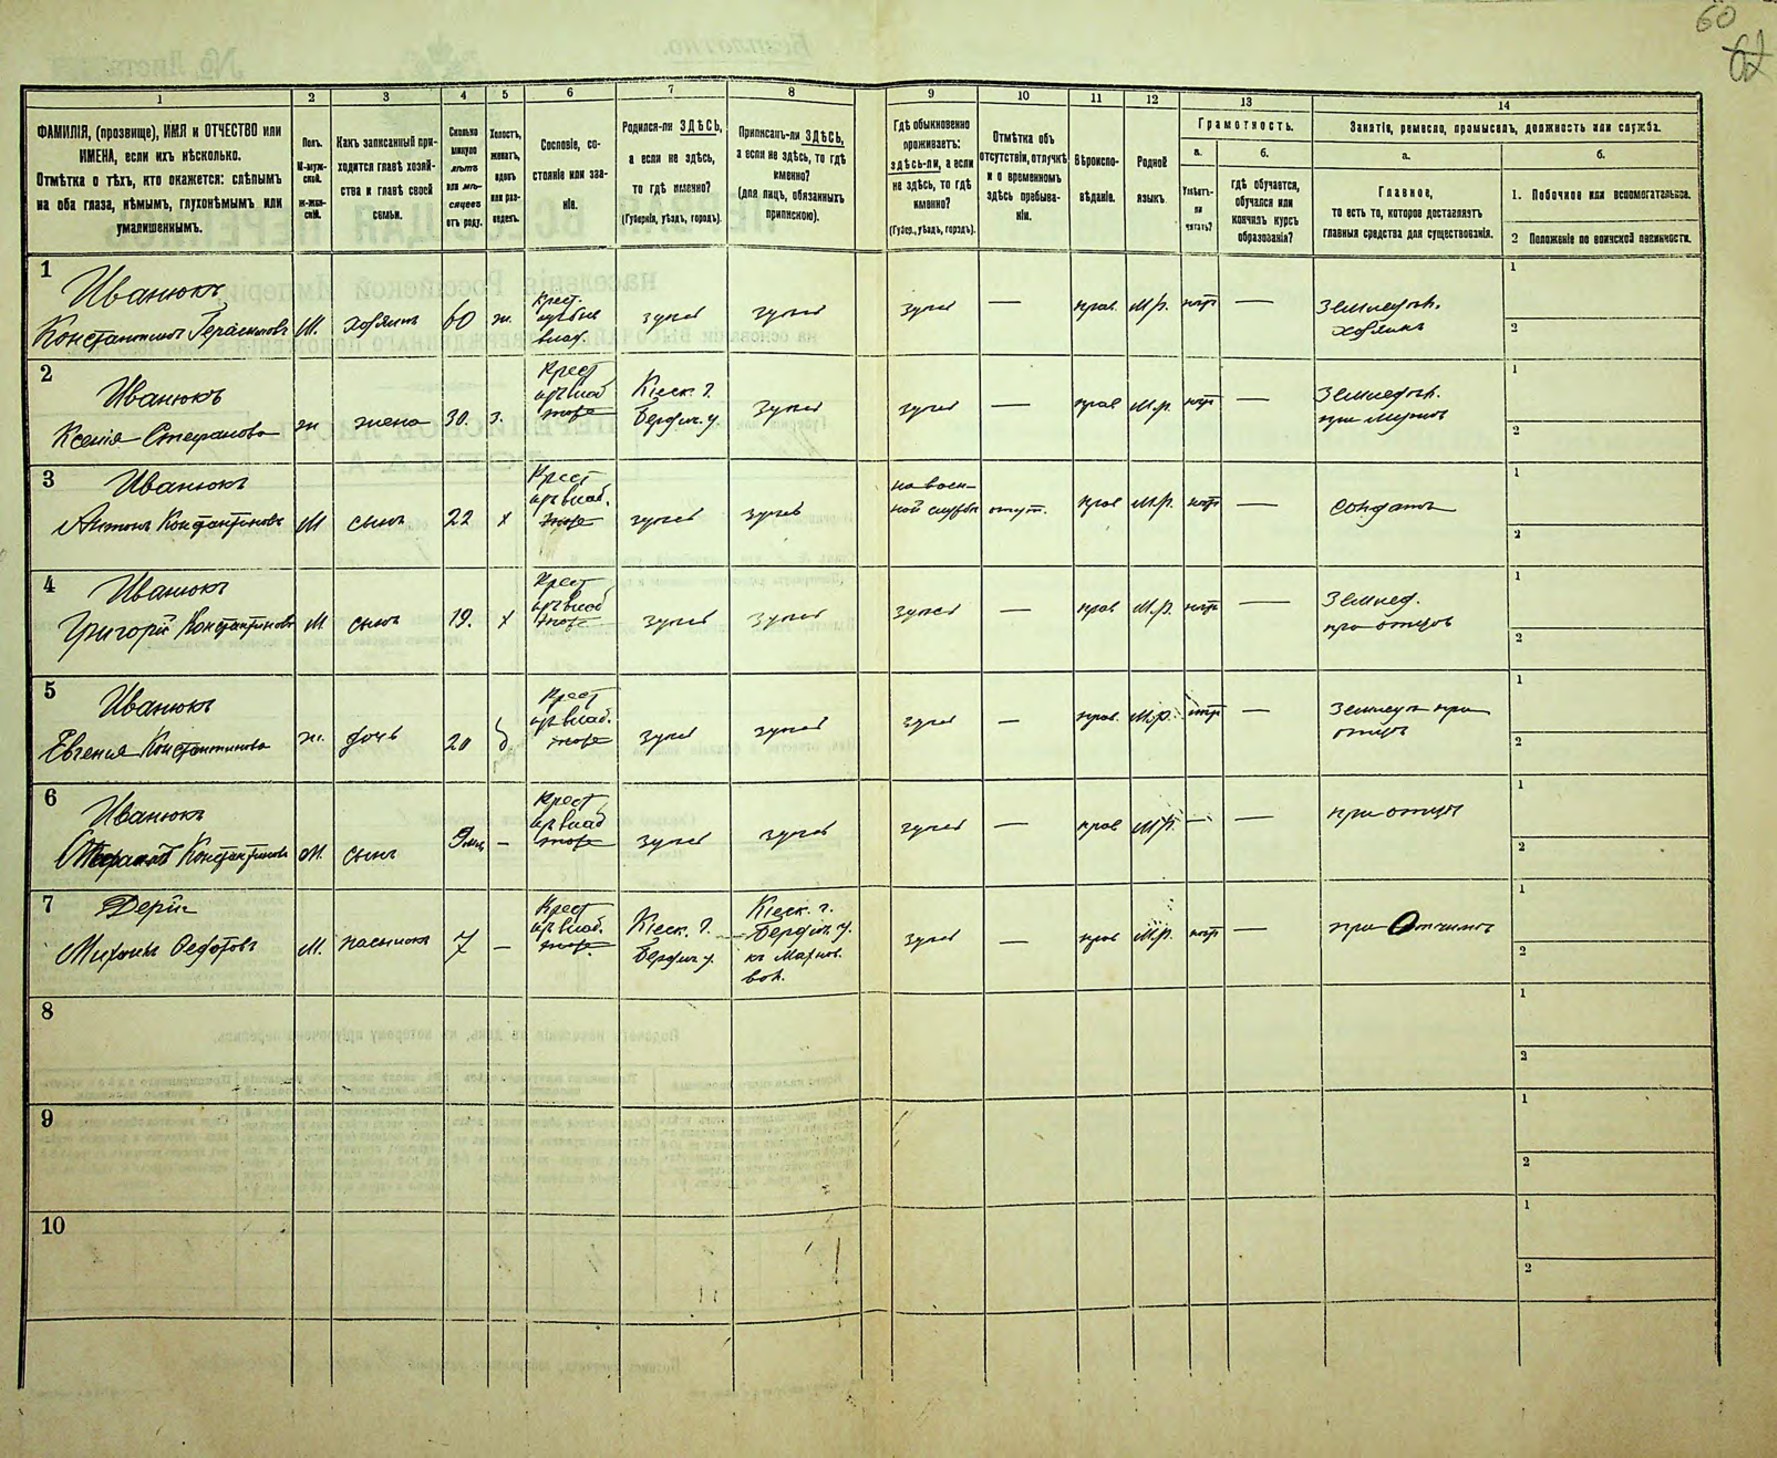 60
62
1
2
3
4
5
6
7
8
9
10
11
12
13
14
ФАМИЛІЯ, (прозвище), ИМЯ и ОТЧЕСТВО или
ИМЕНА, если ихъ нѣсколько.
Отмѣтка о тѣхъ, кто окажется: слѣпымъ
на оба глаза, нѣмымъ, глухонѣмымъ или
умалишеннымъ.
Полъ.
М-муж-
ской.
ж-жен-
скій.
Какъ записанный при-
ходится главѣ хозяй-
ства и главѣ своей
семьи.
Сколько
минуло
лѣтъ
или мѣ-
сяцевъ
отъ роду.
Холостъ,
женатъ,
вдовъ
или раз-
веденъ.
Сословіе, со-
стояніе или зва-
ніе.
Родился-ли ЗДѢСЬ,
а если не здѣсь,
то гдѣ именно?
(Губернія, уѣздъ, городъ).
Приписанъ-ли ЗДѢСЬ,
а если не здѣсь, то гдѣ
именно?
(для лицъ, обязанныхъ
припискою).
Гдѣ обыкновенно
проживаетъ:
здѣсь-ли, а если
не здѣсь, то гдѣ
именно?
(Губер., уѣздъ, городъ).
Отмѣтка объ
отсутствіи, отлучкѣ
и о временномъ
здѣсь пребыва-
ніи.
Вѣроиспо-
вѣданіе.
Родной
языкъ.
Грамотность.
а.
Умѣетъ-
ли
читать?
б.
Гдѣ обучается,
обучался или
кончилъ курсъ
образованія?
Занятіе, ремесло, промыселъ, должность или служба.
а.
Главное,
то есть то, которое доставляетъ
главныя средства для существованія.
б.
1. Побочное или вспомогательное.
2 Положеніе по воинской повинности.
1
Иванюкъ
Константинъ Герасимовъ
М.
хозяинъ
60
ж.
крест.
здѣсь
здѣсь
здѣсь
—
прав.
М.р.
нѣтъ
—
Земледѣл.
хозяинъ
1
2
2
Иванюкъ
Ксенія Стефанова
ж
жена
30.
з.
Крест
изъ влад
тоже
Кіевск. г.
Бердич. у.
здѣсь
здѣсь
—
прав
М.р.
нѣтъ
—
Земледѣл.
при мужѣ
1
2
3
Иванюкъ
Антонъ Константиновъ
М
сынъ
22
х
Крест
изъ влад.
тоже
здѣсь
здѣсь
на воен-
ной службѣ
отсут.
прав
М.р.
нѣтъ
—
солдатъ
1
2
4
Иванюкъ
Григорій Константиновъ
М.
сынъ
19.
х
Крест
изъ влад
тоже
здѣсь
здѣсь
здѣсь
—
прав
М.р.
нѣтъ
—
Землед.
при отцѣ
1
2
5
Иванюкъ
Евгенія Константинова
ж.
дочь
20
д
Крест
изъ влад.
тоже
здѣсь
здѣсь
здѣсь
—
прав.
М.р.
нѣтъ
—
Земледѣл при
отцѣ
1
2
6
Иванюкъ
Стефанъ Константиновъ
М.
сынъ
9 мѣс
—
Крест
изъ влад
тоже
здѣсь
здѣсь
здѣсь
—
прав
М.р.
—
—
при отцѣ
1
2
7
Михаилъ Федотовъ
М.
пасынокъ
7
—
Крест
изъ влад.
тоже
Кіевск. г.
Бердич у.
Кіевск. г.
Бердич. у.
къ Махнов.
вол.
здѣсь
—
прав
М.р.
нѣтъ
—
при Отчимѣ
1
2
8
1
2
9
1
2
10
1
2